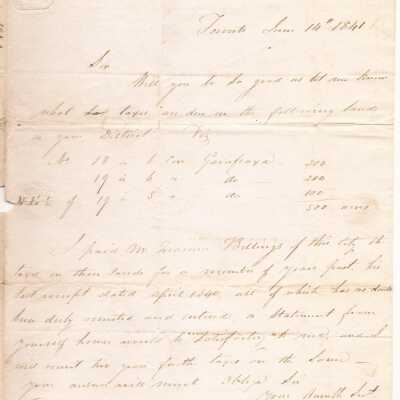 Toronto June 14th 1841
Sir
Will you be so good as let me know
what taxes are due on the following lands
in your District Viz
No 18 in 6 Con Garafraxa 200
19 in 6 " do 200
of 19 in 5 " do 100
500 acres
I paid Mr Billings of this city the
taxes on these lands for a number of years past, his
last receipt dated April 1840, all of which has no doubt
been duly remitted and a statement from
yourself however would be satisfactory to me, and I
will remit you forth taxes on the same
your answer will much oblige Sir
Your Humble Sert